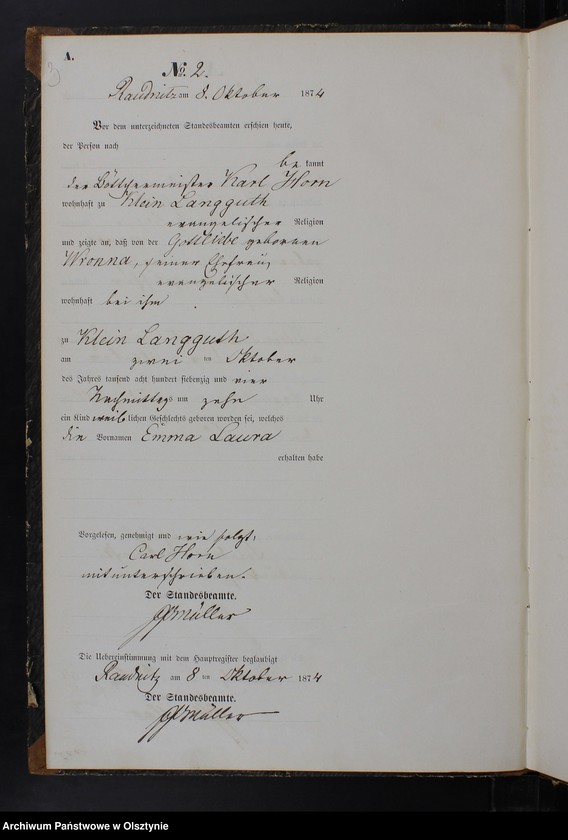 A.
No. 2.
Raudnitz am 8. Oktober 1874
Vor dem unterzeichneten Standesbeamten erschien heute,
der Person nach
be kannt
der Böttchermeister Karl Horn
wohnhaft zu Klein Langguth
evangelischer Religion
und zeigte an, daß von der Gottliebe geborenen
Wronna, seiner Ehefrau,
evangelischer Religion
wohnhaft bei ihm
zu Klein Langguth
am zwei ten Oktober
des Jahres tausend acht hundert siebenzig und vier
Nachmittags um zehn Uhr
ein Kind weib lichen Geschlechts geboren worden sei, welches
die Vornamen Emma Laura
erhalten habe
Vorgelesen, genehmigt und wie folgt:
Carl Horn
mitunterschrieben.
Der Standesbeamte.
Müller
Die Uebereinstimmung mit dem Hauptregister beglaubigt
Raudnitz am 8 ten Oktober 1874
Der Standesbeamte.
Müller
Archiwum Państwowe w Olsztynie